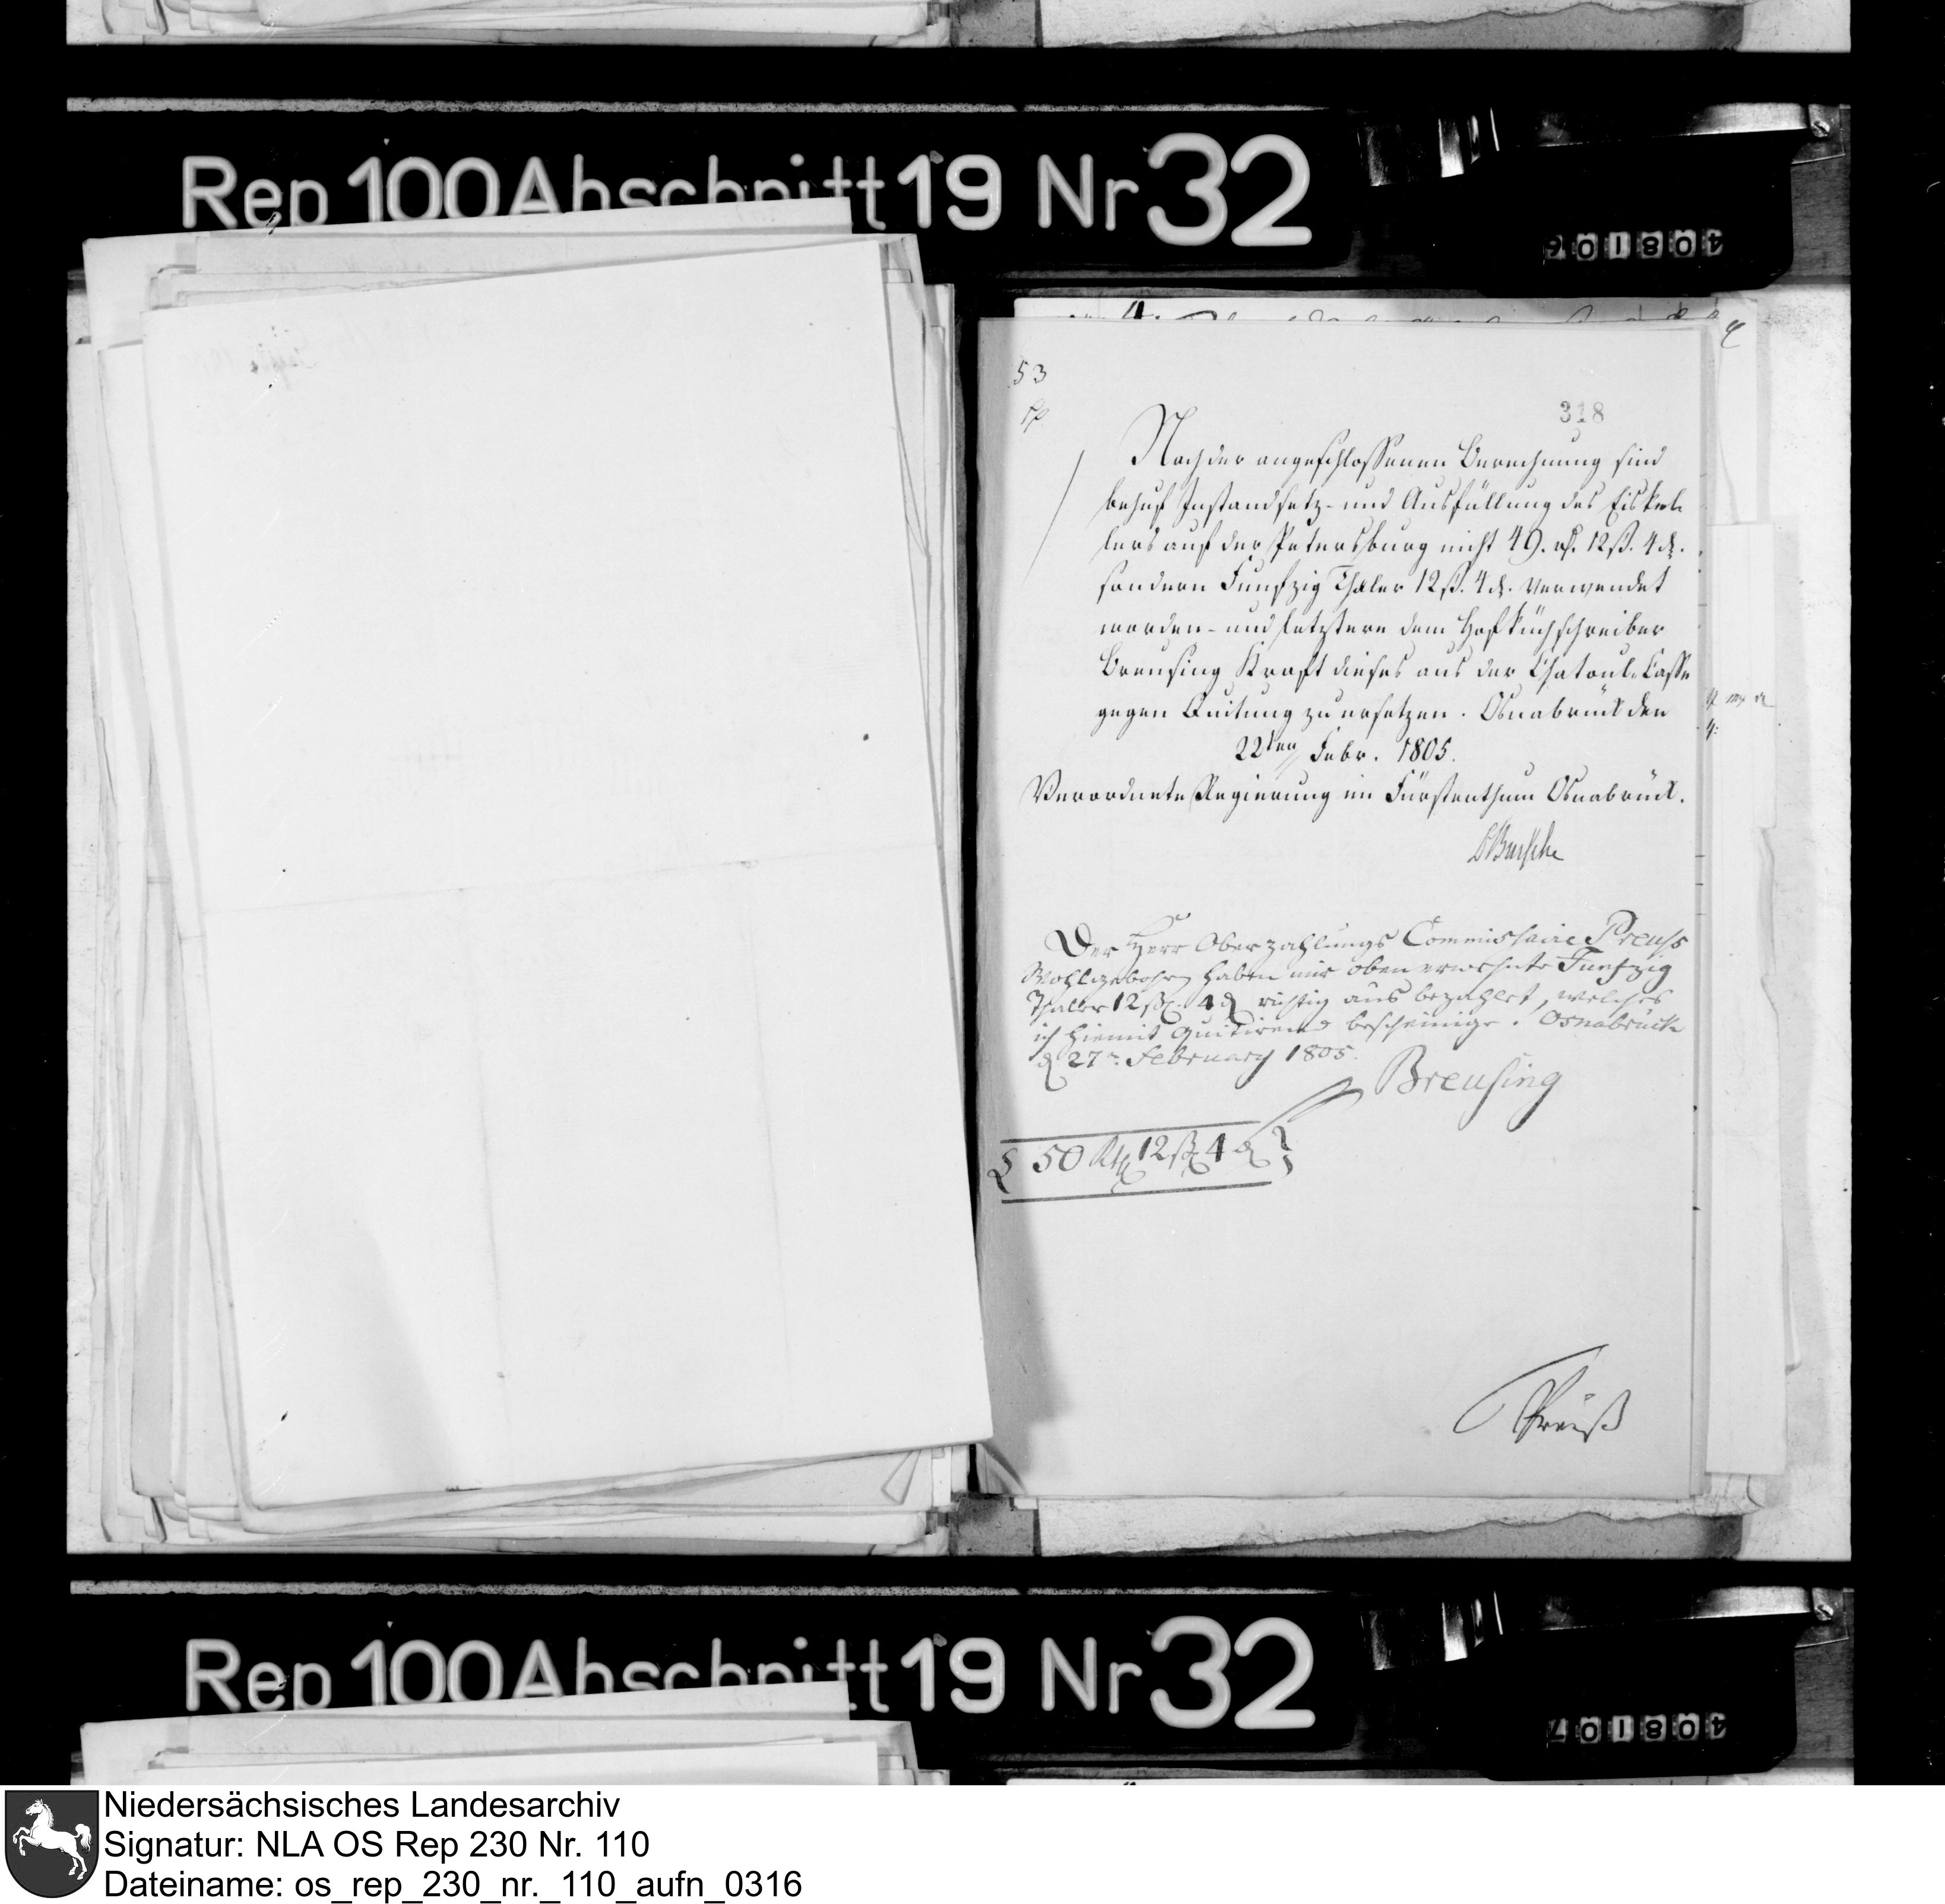 Rep 100 Abschnitt 19 Nr 32
408106
53
318
Nach der angeschlossenen Berechnung sind
behuf Instandsetz- und Ausfüllung des Eiskel-
lers auf der Petersburg nicht 49. rt. 12 ß. 4 d.
sondern Funfzig Thaler 12 ß. 4 d. verwendet
worden - und letztere dem Hofküchschreiber
Breusing Kraft dieses aus der Chatoul-Casse
gegen Quitung zu ersetzen. Osnabrück den
22ten Febr. 1805.
Verordnete Regierung im Fürstenthum Osnabrück.
Bussche
Der Herr Oberzahlungs Commissaire Preuss
Wohlgebohrn haben mir oben erwehnte Funfzig
Thaler 12 ß 4 d richtig aus bezahlet, welches
ich hiemit quitirend bescheinige. Osnabrück
d 27n February 1805.
Breusing
50 Rt 12 ß 4 d
Preuß
Rep 100 Abschnitt 19 Nr 32
408107
Niedersächsisches Landesarchiv
Signatur: NLA OS Rep 230 Nr. 110
Dateiname: os_rep_230_nr._110_aufn_0316